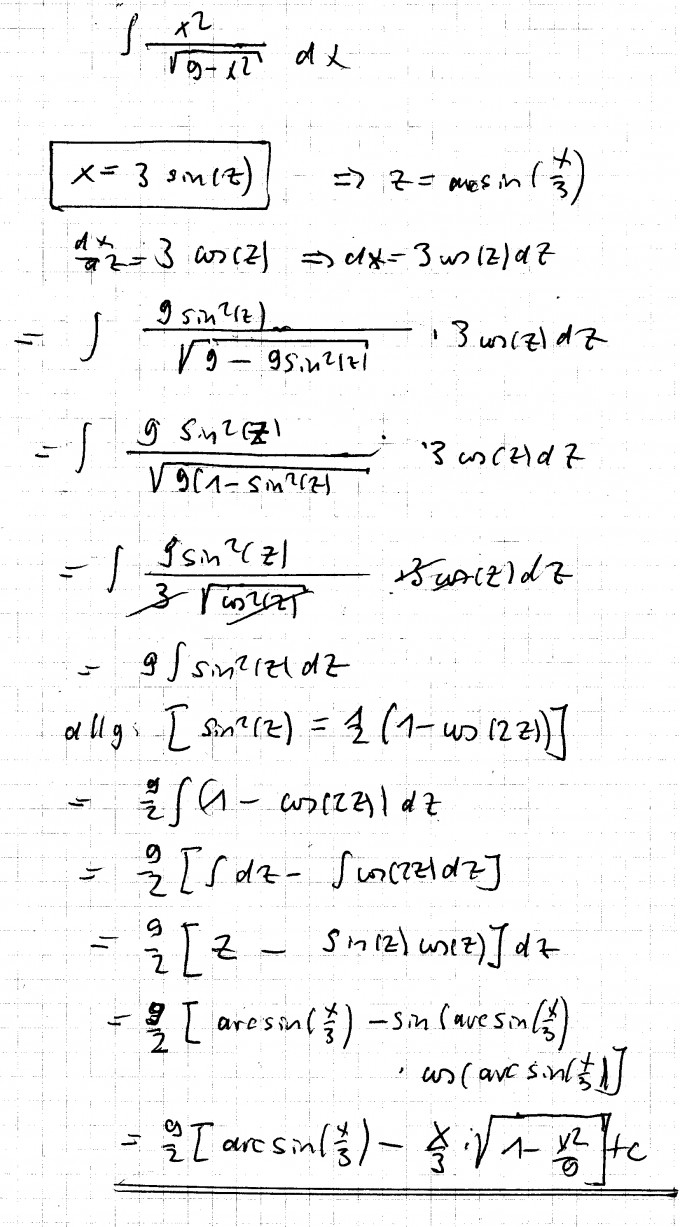 ∫ x²/√(9-x²) dx
x = 3 sin(z) ⇒ z = arcsin(x/3)
dx/dz = 3 cos(z) ⇒ dx = 3 cos(z) dz
= ∫ 9 sin²(z)/√(9 - 9 sin²(z)) · 3 cos(z) dz
= ∫ 9 sin²(z)/√(9(1-sin²(z)) · 3 cos(z) dz
= ∫ 9 sin²(z)/(3 √(cos²(z))) · 3 cos(z) dz
= 9 ∫ sin²(z) dz
allg: [sin²(z) = 1/2 (1-cos(2z))]
= 9/2 ∫ (1 - cos(2z)) dz
= 9/2 [∫ dz - ∫ cos(2z) dz]
= 9/2 [z - sin(z) cos(z)] dz
= 9/2 [arcsin(x/3) - sin(arcsin(x/3)
· cos(arcsin(x/3))]
= 9/2 [arcsin(x/3) - x/3 · √(1 - x²/9)] + c